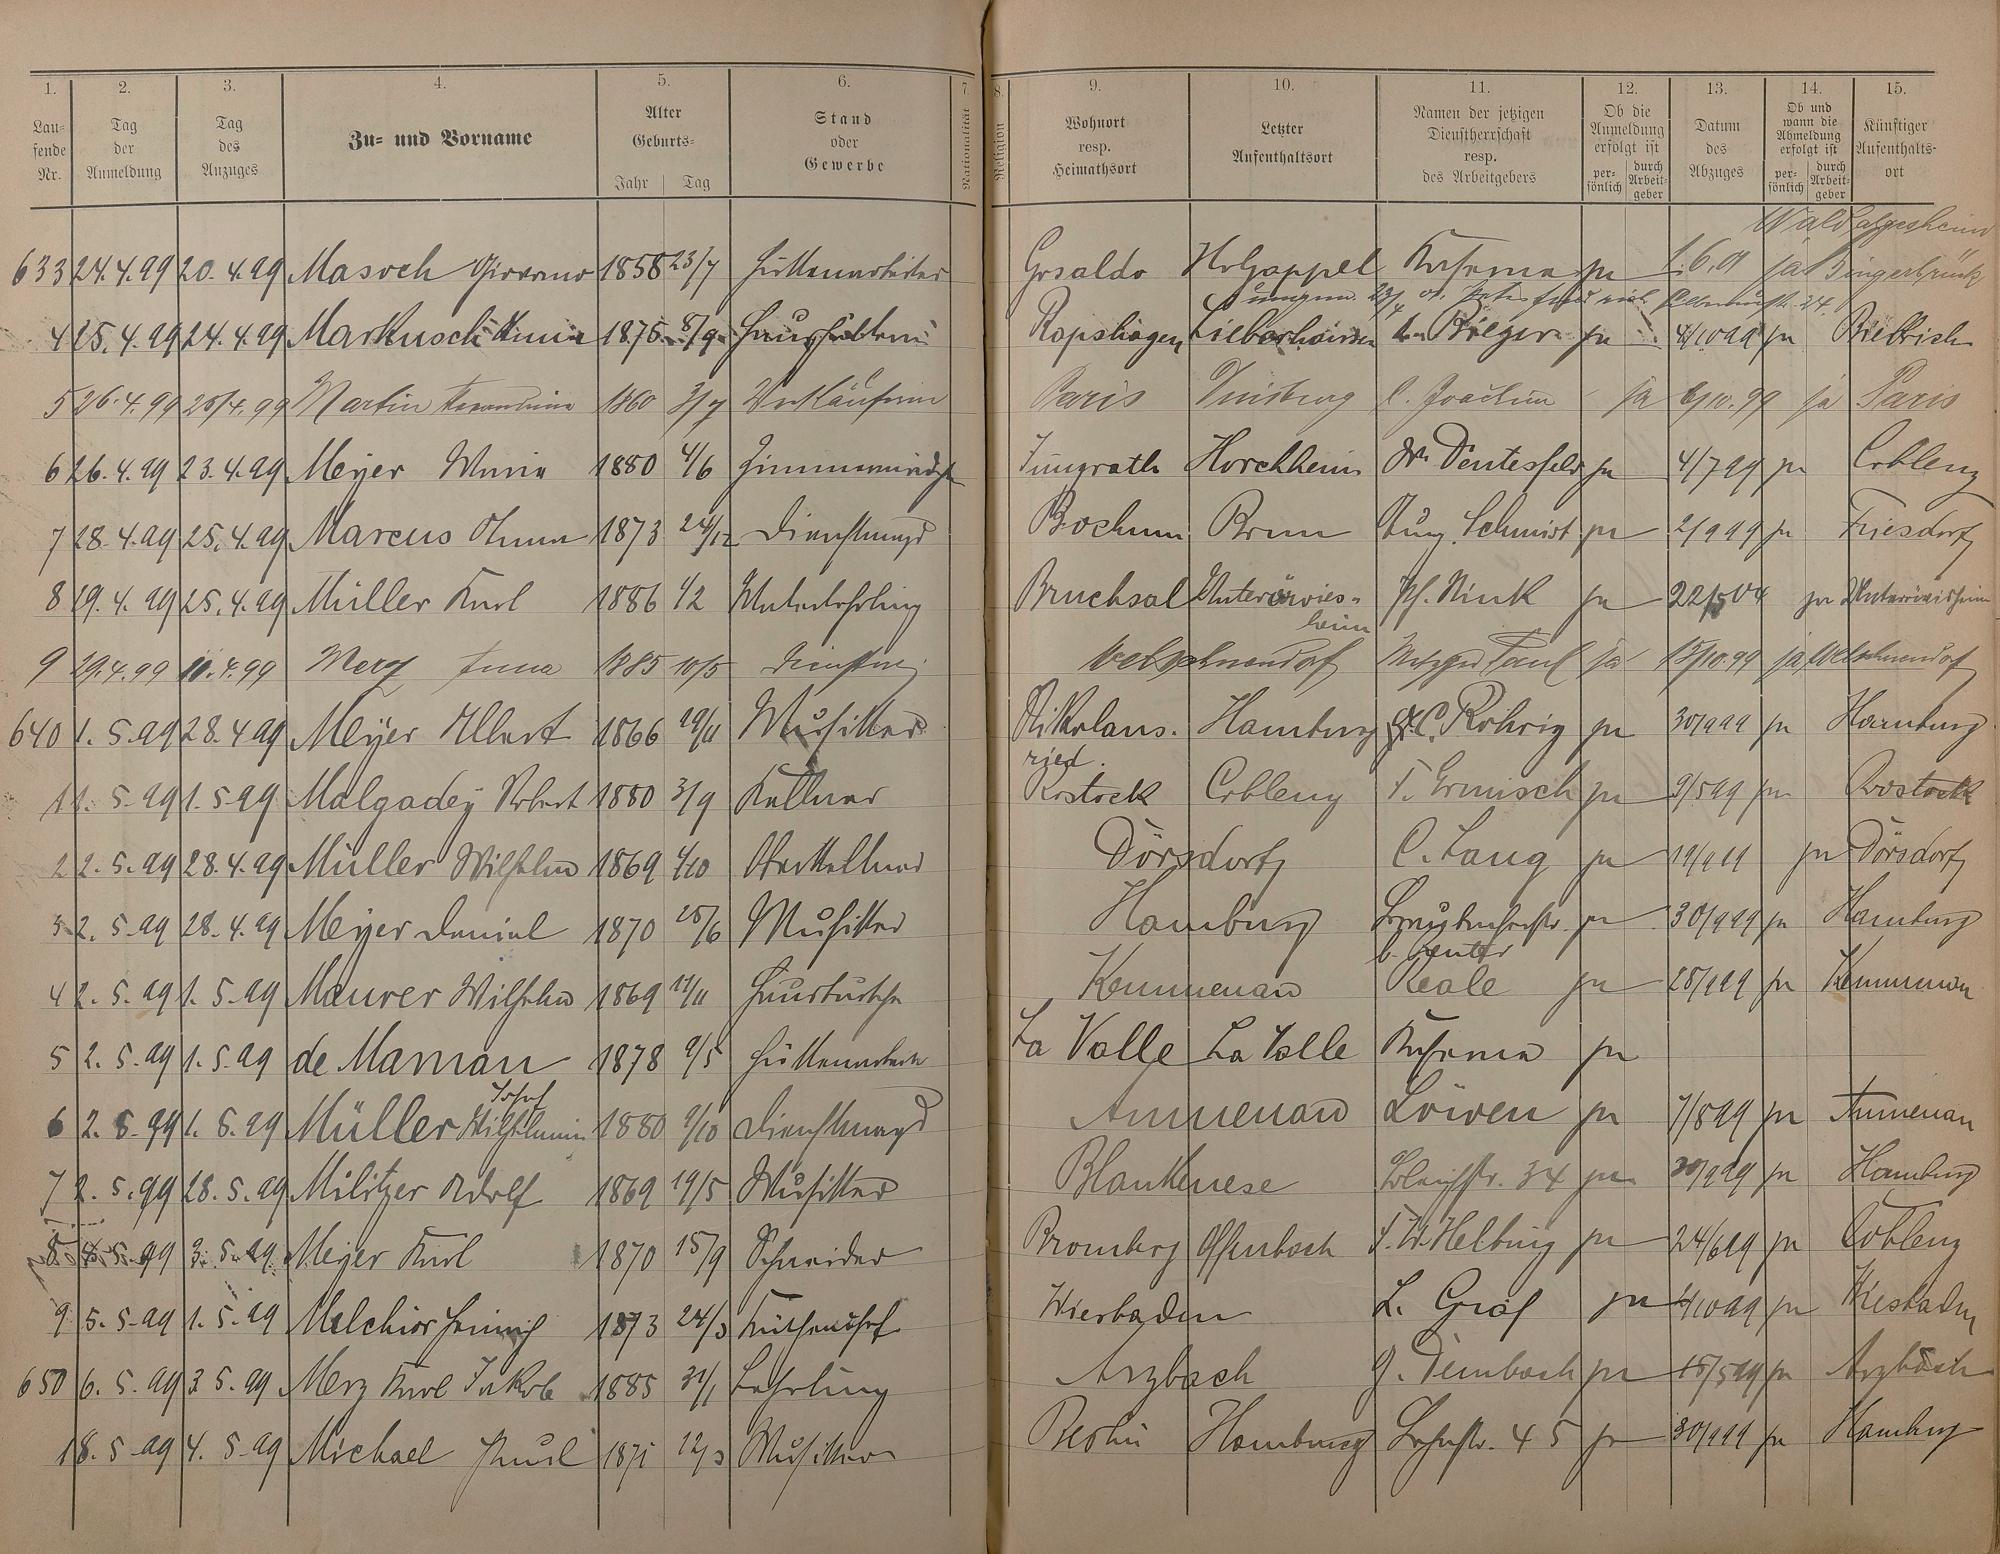 1. 2. 3. 4. 5. 6. 7. 8. 9. 10. 11. 12. 13. 14. 15.
Laufende Nr. Tag der Anmeldung Tag des Anzuges Zu- und Vorname Alter Geburts- Jahr Tag Stand oder Gewerbe Nationalität Religion Wohnort resp. Heimathsort Letzter Aufenthaltsort Namen der jetzigen Dienstherrschaft resp. des Arbeitgebers Ob die Anmeldung erfolgt ist persönlich durch Arbeitgeber Datum des Abzuges Ob und wann die Abmeldung erfolgt ist persönlich durch Arbeitgeber Künftiger Aufenthaltsort
Waldalgesheim
633 24.4.99 20.4.99 Masoch Giovanno 1858 23/7 Hüttenarbeiter Gosaldo Holzappel ja 1.6.01 ja Bingerbrück
4 25.4.99 24.4.99 Markusch Anna 1876 Haushälterin Rapshagen Lieberhausen ja 4/10 99 ja Biebrich
5 26.4.99 20/4.99 Martin 1860 3/7 Verkäuferin Paris Duisburg C. Joachim ja 6/10.99 ja Paris
6 26.4.99 23.4.99 Meyer Maria 1880 4/6 Zimmermädchen Horchheim ja 4/7 99 ja Coblenz
7 28.4.99 25.4.99 Marcus Anna 1873 24/12 Dienstmagd Bochum Bonn Aug. Schmidt ja 2/9 99 ja Friesdorf
8 29.4.99 25.4.99 Müller Karl 1886 1/2 Malerlehrling Bruchsal Unteröwies-
heim Ph. Kink ja 22/5 04 ja Unteröwisheim
9 29.4.99 11.4.99 Merz Anna 1885 10/5 Welschneudorf Metzger Paul ja 15/10.99 ja Welschneudorf
640 1.5.99 28.4.99 Meyer Albert 1866 19/11 Musiker Nikolaus.
ried. Hamburg C. Röhrig ja 30/9 99 ja Hamburg
1 1.5.99 1.5.99 Malgadey Robert 1880 3/9 Kellner Rostock Coblenz F. Ermisch ja 9/5 99 ja Rostock
2 2.5.99 28.4.99 Müller Wilhelm 1869 4/10 Oberkellner Dörsdorf C. Lang ja ja Dörsdorf
3 2.5.99 28.4.99 Meyer Daniel 1870 25/6 Musiker Hamburg ja 30/9 99 ja Hamburg
4 2.5.99 1.5.99 Maurer Wilhelm 1869 Hausbursche Kemmenau Reale ja 28/9 99 ja Kemmenau
5 2.5.99 1.5.99 de Maman 1878 9/5 Hüttenarbeiter La Valle La Valle ja
Josef
6 2.5.99 1.5.99 Müller Wilhelmine 1880 9/10 Dienstmagd Attenau Löwen ja 7/8 99 ja
7 2.5.99 28.5.99 Militzer Adolf 1869 19/5 Musiker Blankenese 34 ja 30/9 99 ja Hamburg
8 5.99 3.5.99 Meyer Karl 1870 15/9 Schneider Bromberg Offenbach F. W. Helbing ja 24/6 99 ja Coblenz
9 5.5.99 1.5.99 Melchior Heinrich 1873 24/3 Wiesbaden L. Graf ja 4/10 99 ja Wiesbaden
650 6.5.99 3.5.99 Merz Karl Jakob 1885 31/1 Lehrling Arzbach J. Dembach ja 15/5 99 ja Arzbach
1 8.5.99 4.5.99 Michael Paul 1871 12/3 Musiker Berlin Hamburg Lahnstr. 45 ja 30/9 99 ja Hamburg